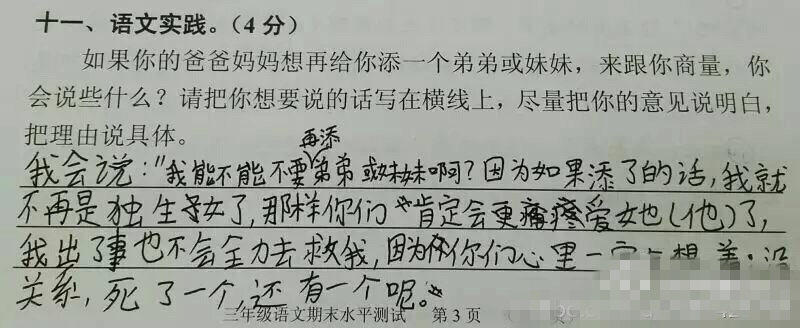 十一、语文实践。（4分）
如果你的爸爸妈妈想再给你添一个弟弟或妹妹，来跟你商量，你
会说些什么？请把你想要说的话写在横线上，尽量把你的意见说明白，
把理由说具体。
再添
我会说："我能不能不要弟弟或妹妹啊？因为如果添了的话，我就
不再是独生子女了，那样你们肯定会更疼爱她（他）了，
我出了事也不会全力去救我，因为你们心里一定 想着：没
关系，死了一个，还有一个呢。"
三年级语文期末水平测试 第3页